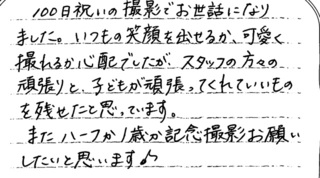 100日祝いの撮影でお世話になり
ました。いつもの笑顔を出せるか、可愛く
撮れるか心配でしたが、スタッフの方々の
頑張りと、子どもが頑張ってくれていいもの
を残せたと思っています。
またハーフか1歳か記念撮影お願い
したいと思います♪